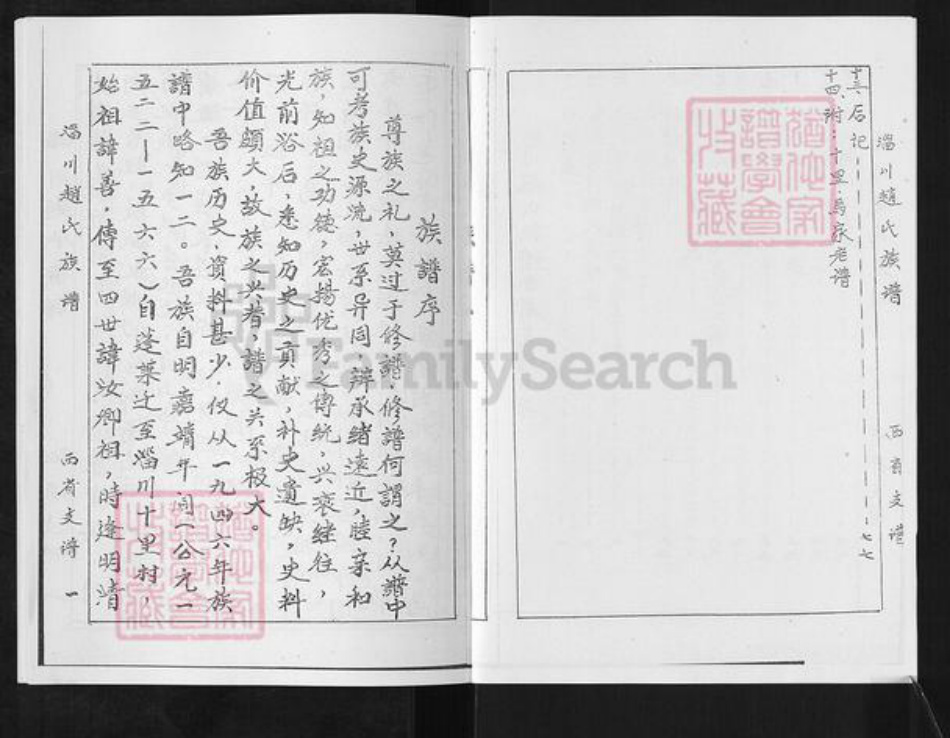 淄川趙氏族譜
西育支谱
十三、后记------------七七
十四、附：十里、馬家老谱
族譜序
尊族之礼，莫过于修譜。修譜何謂之？从譜中
可考族史源流，世系异同，辨承緒遠近，睦亲和
族，知祖之功德，宏揚优秀之傳統，兴衰継往，
光前浴后，悉知历史之貢献，补史遺缺，史料
价值頗大，故族之兴替，譜之关系极大。
吾族历史，資料甚少，仅从一九四六年族
譜中略知一二。吾族自明嘉靖年间（公元一
五二二—一五六六）自蓬莱迁至淄川十里村，
始祖諱善，傳至四世諱汝卿祖，時逢明清
淄川趙氏族譜
西育支谱
一
FamilySearch